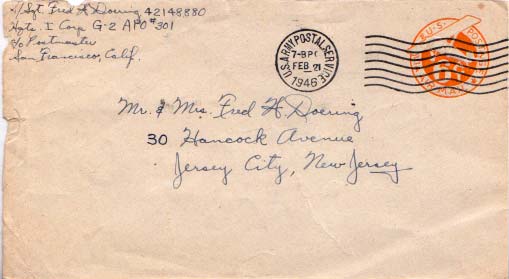 T/Sgt Fred H Doering 42148880
Hqts. I Corp G-2 APO #301
c/o Postmaster
San Francisco, Calif.
U.S. ARMY POSTAL SERVICE
FEB 21
1946
U.S. POSTAGE
Mr. & Mrs. Fred H Doering
30 Hancock Avenue
Jersey City, New Jersey